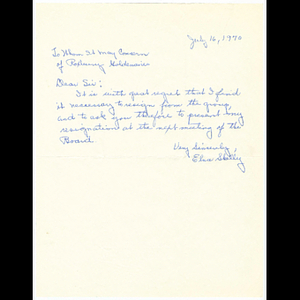 July 16, 1970
To Whom It May Concern
of Roxbury Goldenaires
Dear Sir:
It is with great regret that I find
it necessary to resign from the group,
and to ask you therefore to present my
resignation at the next meeting of the
Board
Very Sincerely,